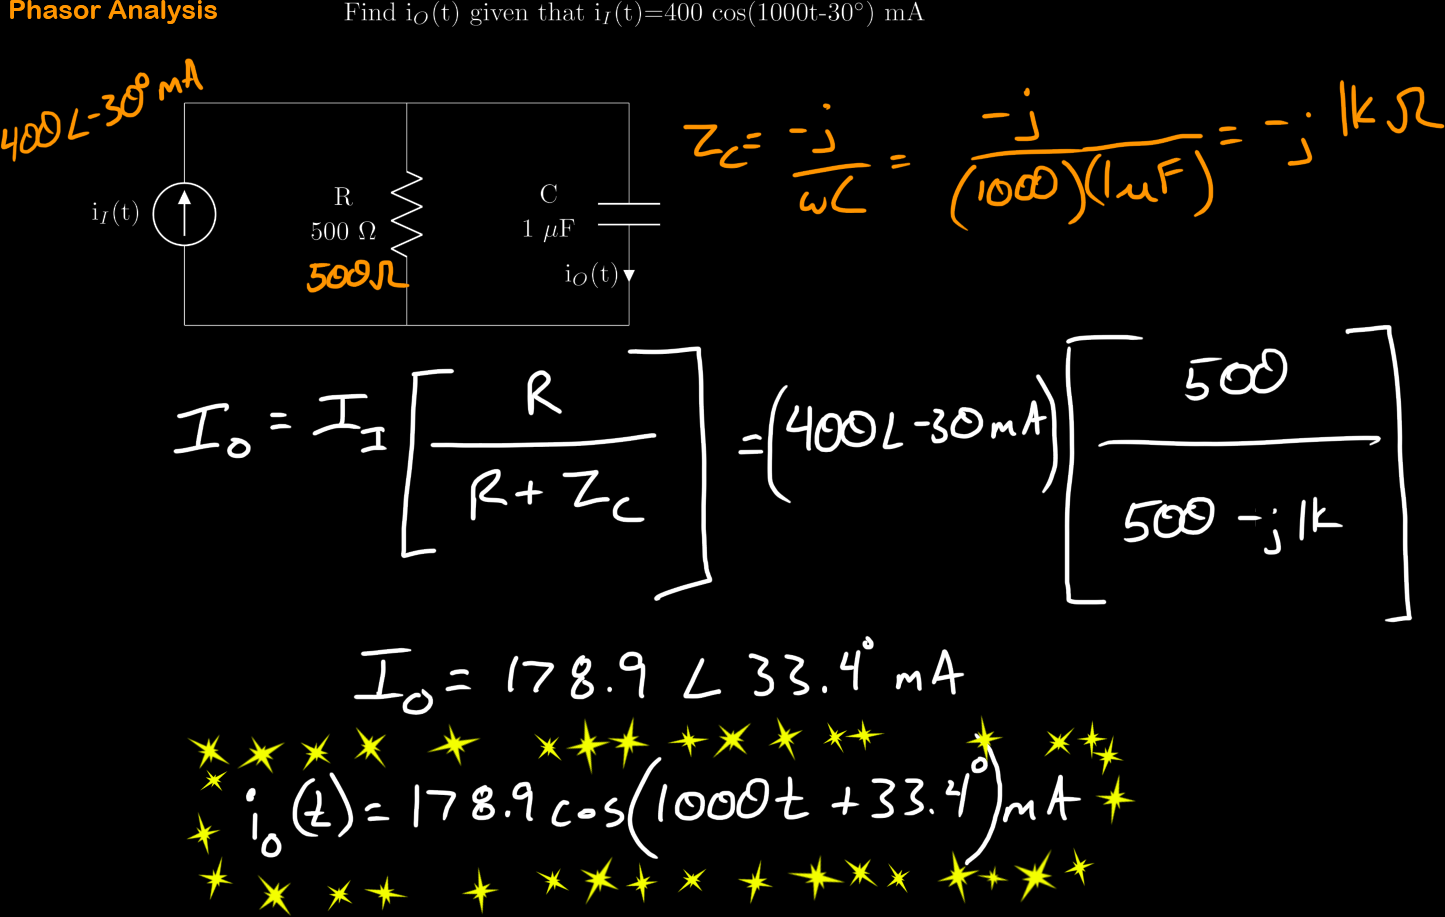 Phasor Analysis
Find i_O(t) given that i_I(t)=400 cos(1000t-30°) mA
400∠-30° mA
i_I(t)
R
500 Ω
500Ω
C
1 μF
i_O(t)
Z_C = -j/ωC = -j/(1000)(1μF) = -j 1kΩ
I_O = I_I [R/R + Z_C] = (400∠-30 mA) [500/500 -j1k]
I_O = 178.9 ∠ 33.4° mA
i_O(t) = 178.9 cos(1000t +33.4°) mA